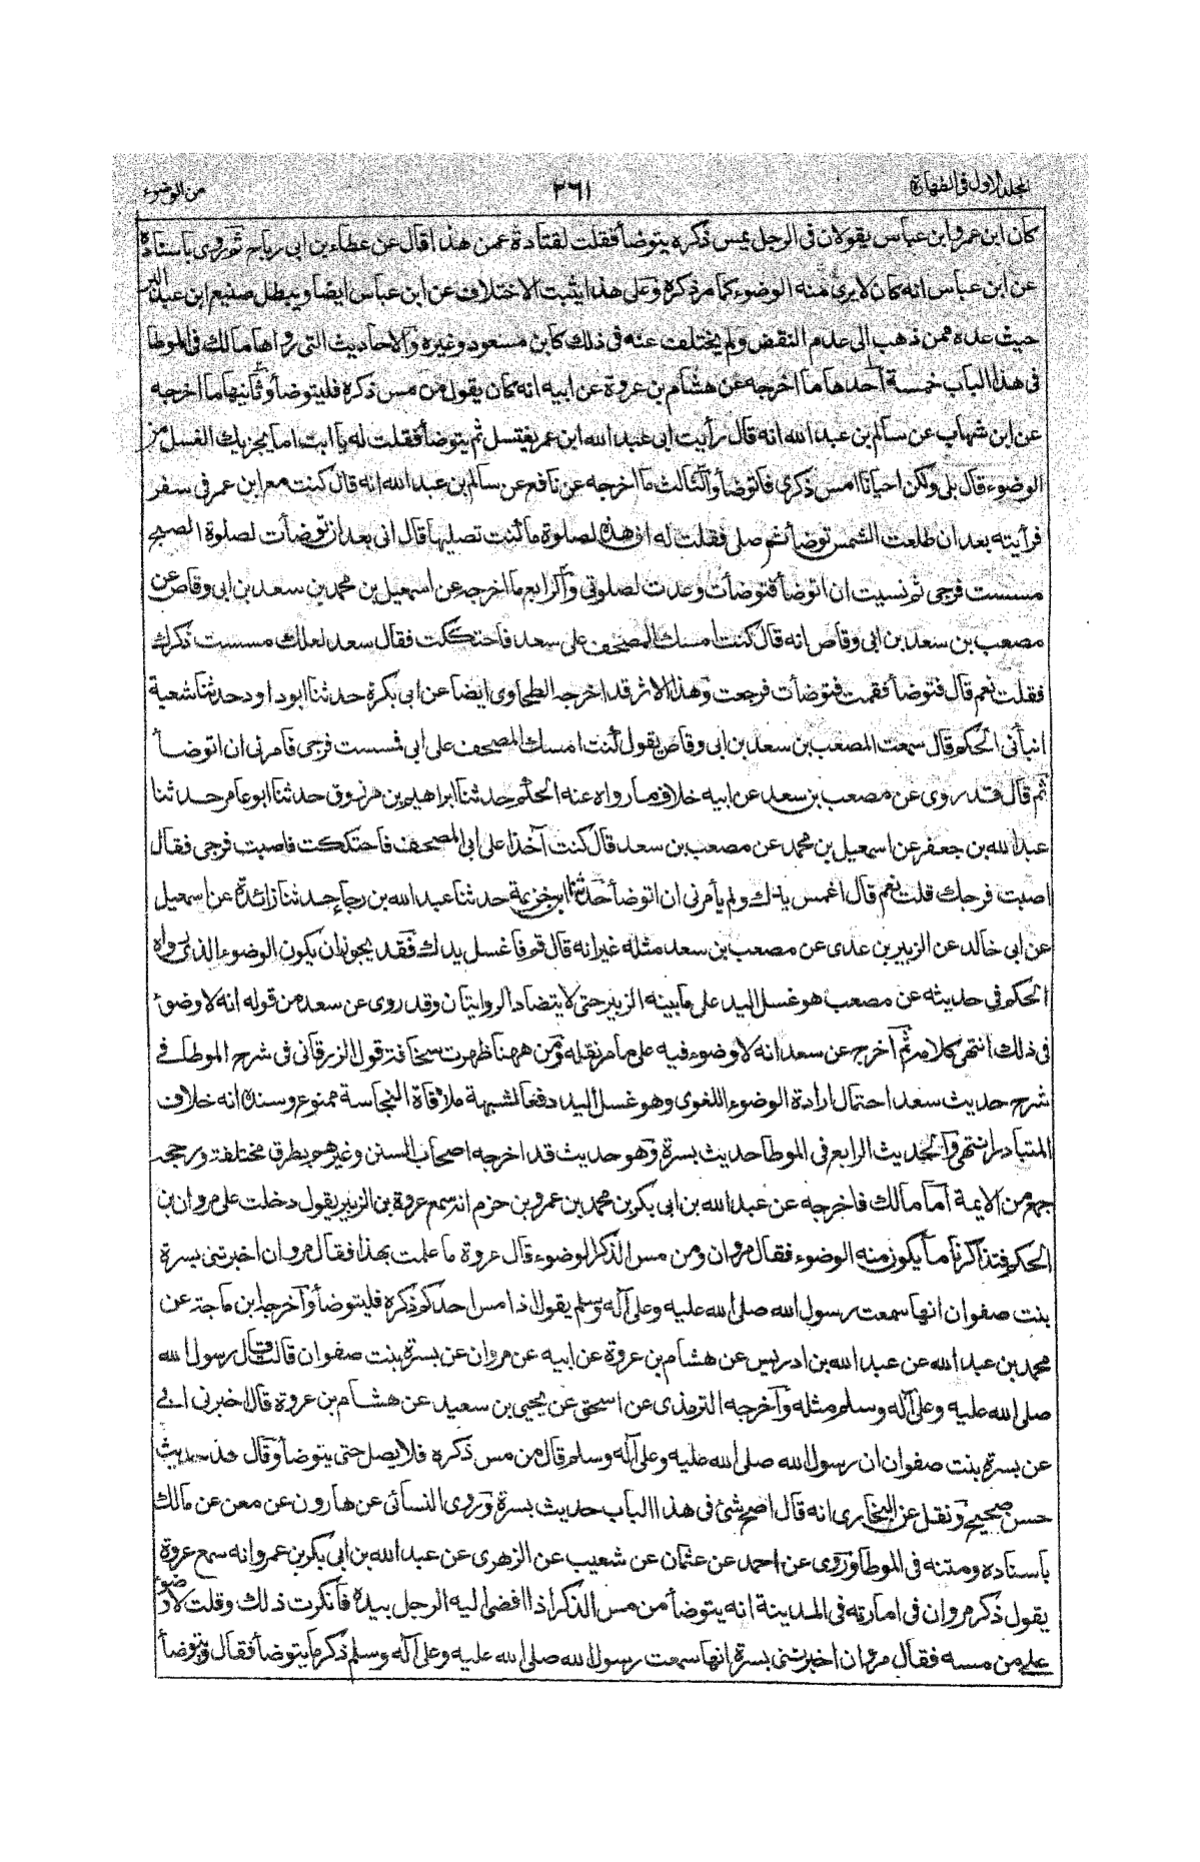 المجلد الاول فى الطهارة
٢٦١
من الوضوء
كان ابن عمر وابن عباس يقولان فى الرجل يمس ذكره يتوضأ فقلت لقتادة عمن هذا قال عن عطاء بن ابى رباح ثم روى باسناده
عن ابن عباس انه كان لا يرى منه الوضوء كما مر ذكره وعلى هذا يثبت الاختلاف عن ابن عباس ايضا ويبطل صنيع ابن عبد البر
حيث عده ممن ذهب الى عدم النقض ولم يختلف عنه فى ذلك كابن مسعود وغيره والاحاديث التى رواها مالك فى الموطا
فى هذا الباب خمسة احدها ما اخرجه عن هشام بن عروة عن ابيه انه كان يقول من مس ذكره فليتوضأ وثانيها ما اخرجه
عن ابن شهاب عن سالم بن عبد الله انه قال رأيت ابى عبد الله ابن عمر يغتسل ثم يتوضأ فقلت له يا ابت اما يجزيك الغسل من
الوضوء قال بلى ولكن احيانا امس ذكرى فاتوضأ والثالث ما اخرجه عن نافع عن سالم بن عبد الله انه قال كنت مع ابن عمر فى سفر
فرأيته بعد ان طلعت الشمس توضأ ثم صلى فقلت له ان هذه لصلوة ما كنت تصليها قال انى بعد ان توضأت لصلوة الصبح
مسست فرجى ثم نسيت ان اتوضأ فتوضأت وعدت لصلوتى والرابع ما اخرجه عن اسمعيل بن محمد بن سعد بن ابى وقاص عن
مصعب بن سعد بن ابى وقاص انه قال كنت امسك المصحف على سعد فاحتككت فقال سعد لعلك مسست ذكرك
فقلت نعم قال فتوضأ فقمت فتوضأت فرجعت وهذا الاثر قد اخرجه الطحاوى ايضا عن ابى بكرة حدثنا ابو داود حدثنا شعبة
انبأنى الحكم قال سمعت المصعب بن سعد بن ابى وقاص يقول كنت امسك المصحف على ابى فمسست فرجى فامرنى ان اتوضأ
ثم قال قد روى عن مصعب بن سعد عن ابيه خلاف ما رواه عنه الحكم حدثنا ابراهيم بن مرزوق حدثنا ابو عامر حدثنا
عبد الله بن جعفر عن اسمعيل بن محمد عن مصعب بن سعد قال كنت آخذا على ابى المصحف فاحتككت فاصبت فرجى فقال
اصبت فرجك قلت نعم قال اغمس يدك ولم يأمرنى ان اتوضأ حدثنا ابن خزيمة حدثنا عبد الله بن رجاء حدثنا زائدة عن اسمعيل
عن ابى خالد عن الزبير بن عدى عن مصعب بن سعد مثله غير انه قال قم فاغسل يدك فقد يجوز ان يكون الوضوء الذى رواه
الحكم فى حديثه عن مصعب هو غسل اليد على ما بينه الزبير حتى لا يتضاد الروايتان وقد روى عن سعد من قوله انه لا وضوء
فى ذلك انتهى كلامه ثم اخرج عن سعد انه لا وضوء فيه على ما مر نقله ومن ههنا ظهرت سخافة قول الزرقانى فى شرح الموطا فى
شرح حديث سعد احتمال ارادة الوضوء اللغوى وهو غسل اليد دفعا لشبهة ملاقاة النجاسة ممنوع وسنده انه خلاف
المتبادر انتهى والحديث الرابع فى الموطا حديث بسرة وهو حديث قد اخرجه اصحاب السنن وغيرهم بطرق مختلفة ورجحه
جمع من الايمة اما مالك فاخرجه عن عبد الله بن ابى بكر بن محمد بن عمرو بن حزم انه سمع عروة بن الزبير يقول دخلت على مروان بن
الحكم فتذاكرنا ما يكون منه الوضوء فقال مروان ومن مس الذكر الوضوء قال عروة ما علمت بهذا فقال مروان اخبرتنى بسرة
بنت صفوان انها سمعت رسول الله صلى الله عليه وعلى آله وسلم يقول اذا مس احدكم ذكره فليتوضأ واخرجه ابن ماجة عن
محمد بن عبد الله عن عبد الله بن ادريس عن هشام بن عروة عن ابيه عن مروان عن بسرة بنت صفوان قالت قال رسول الله
صلى الله عليه وعلى آله وسلم مثله وآخرجه الترمذى عن اسحق عن يحيى بن سعيد عن هشام بن عروة قال اخبرنى ابى
عن بسرة بنت صفوان ان رسول الله صلى الله عليه وعلى آله وسلم قال من مس ذكره فلا يصل حتى يتوضأ وقال هذا حديث
حسن صحيح ونقل عن البخارى انه قال اصح شئ فى هذا الباب حديث بسرة وروى النسائى عن هارون عن معن عن مالك
باسناده ومتنه فى الموطا وروى عن احمد عن عثمان عن شعيب عن الزهرى عن عبد الله بن ابى بكر بن عمرو انه سمع عروة
يقول ذكر مروان فى امارته فى المدينة انه يتوضأ من مس الذكر اذا افضى اليه الرجل بيده فانكرت ذلك وقلت لا وضوء
على من مسه فقال مروان اخبرتنى بسرة انها سمعت رسول الله صلى الله عليه وعلى آله وسلم ذكر ما يتوضأ فقال ويتوضأ